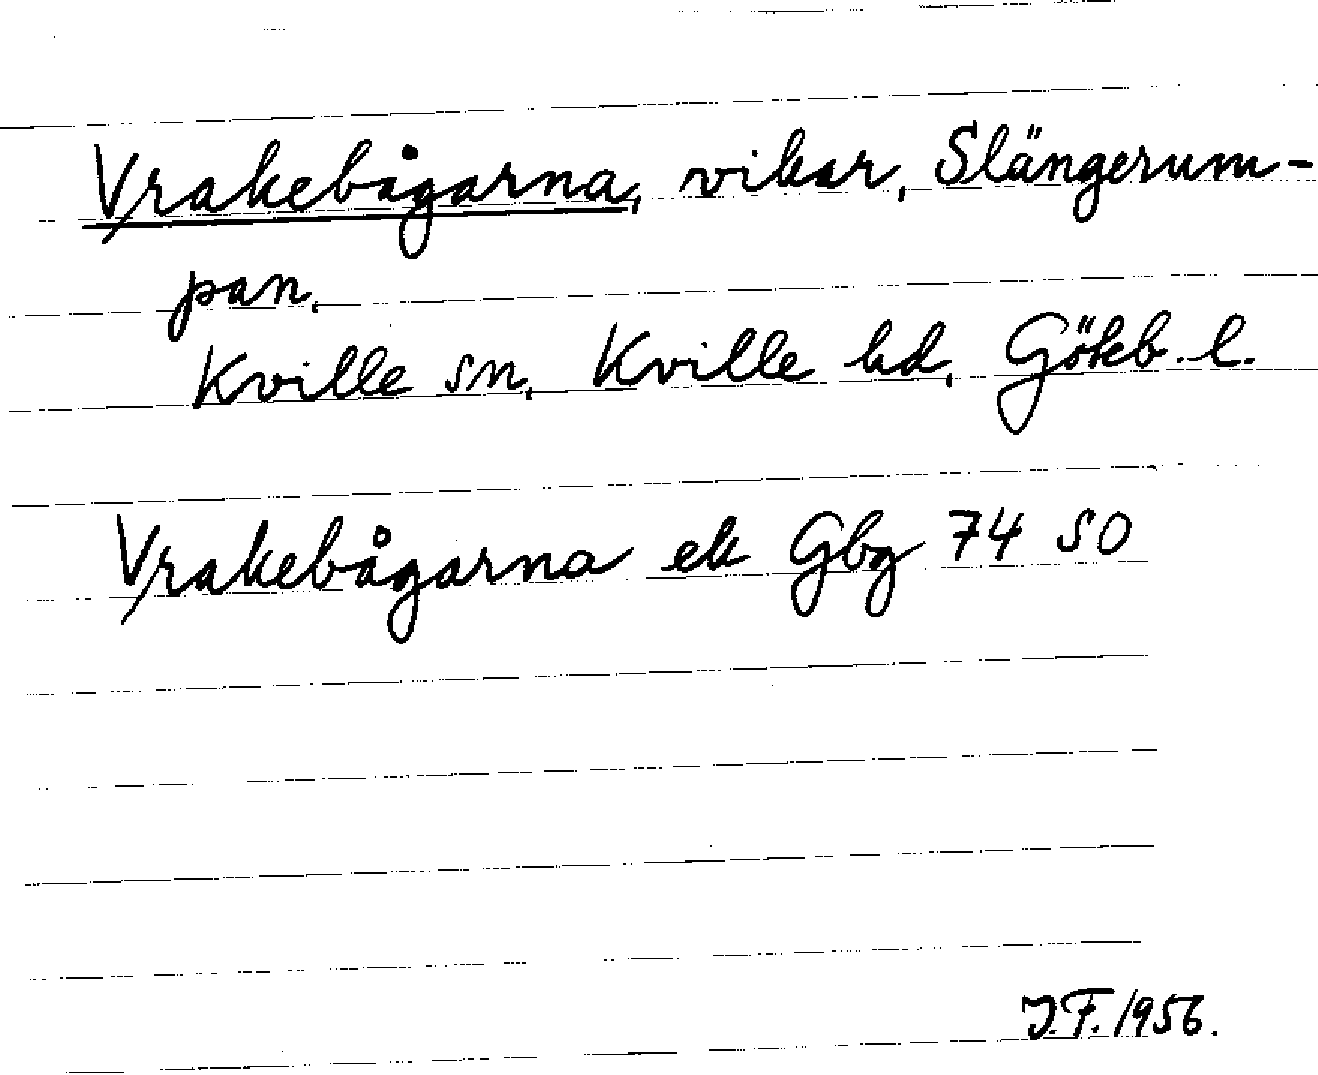 Vrakebågarna, vikar, Slängerum-
pan.
Kville sn, Kville hd, Gökb. l.
Vrakebågarna ek Gbg 74 SO
J.F. 1956.